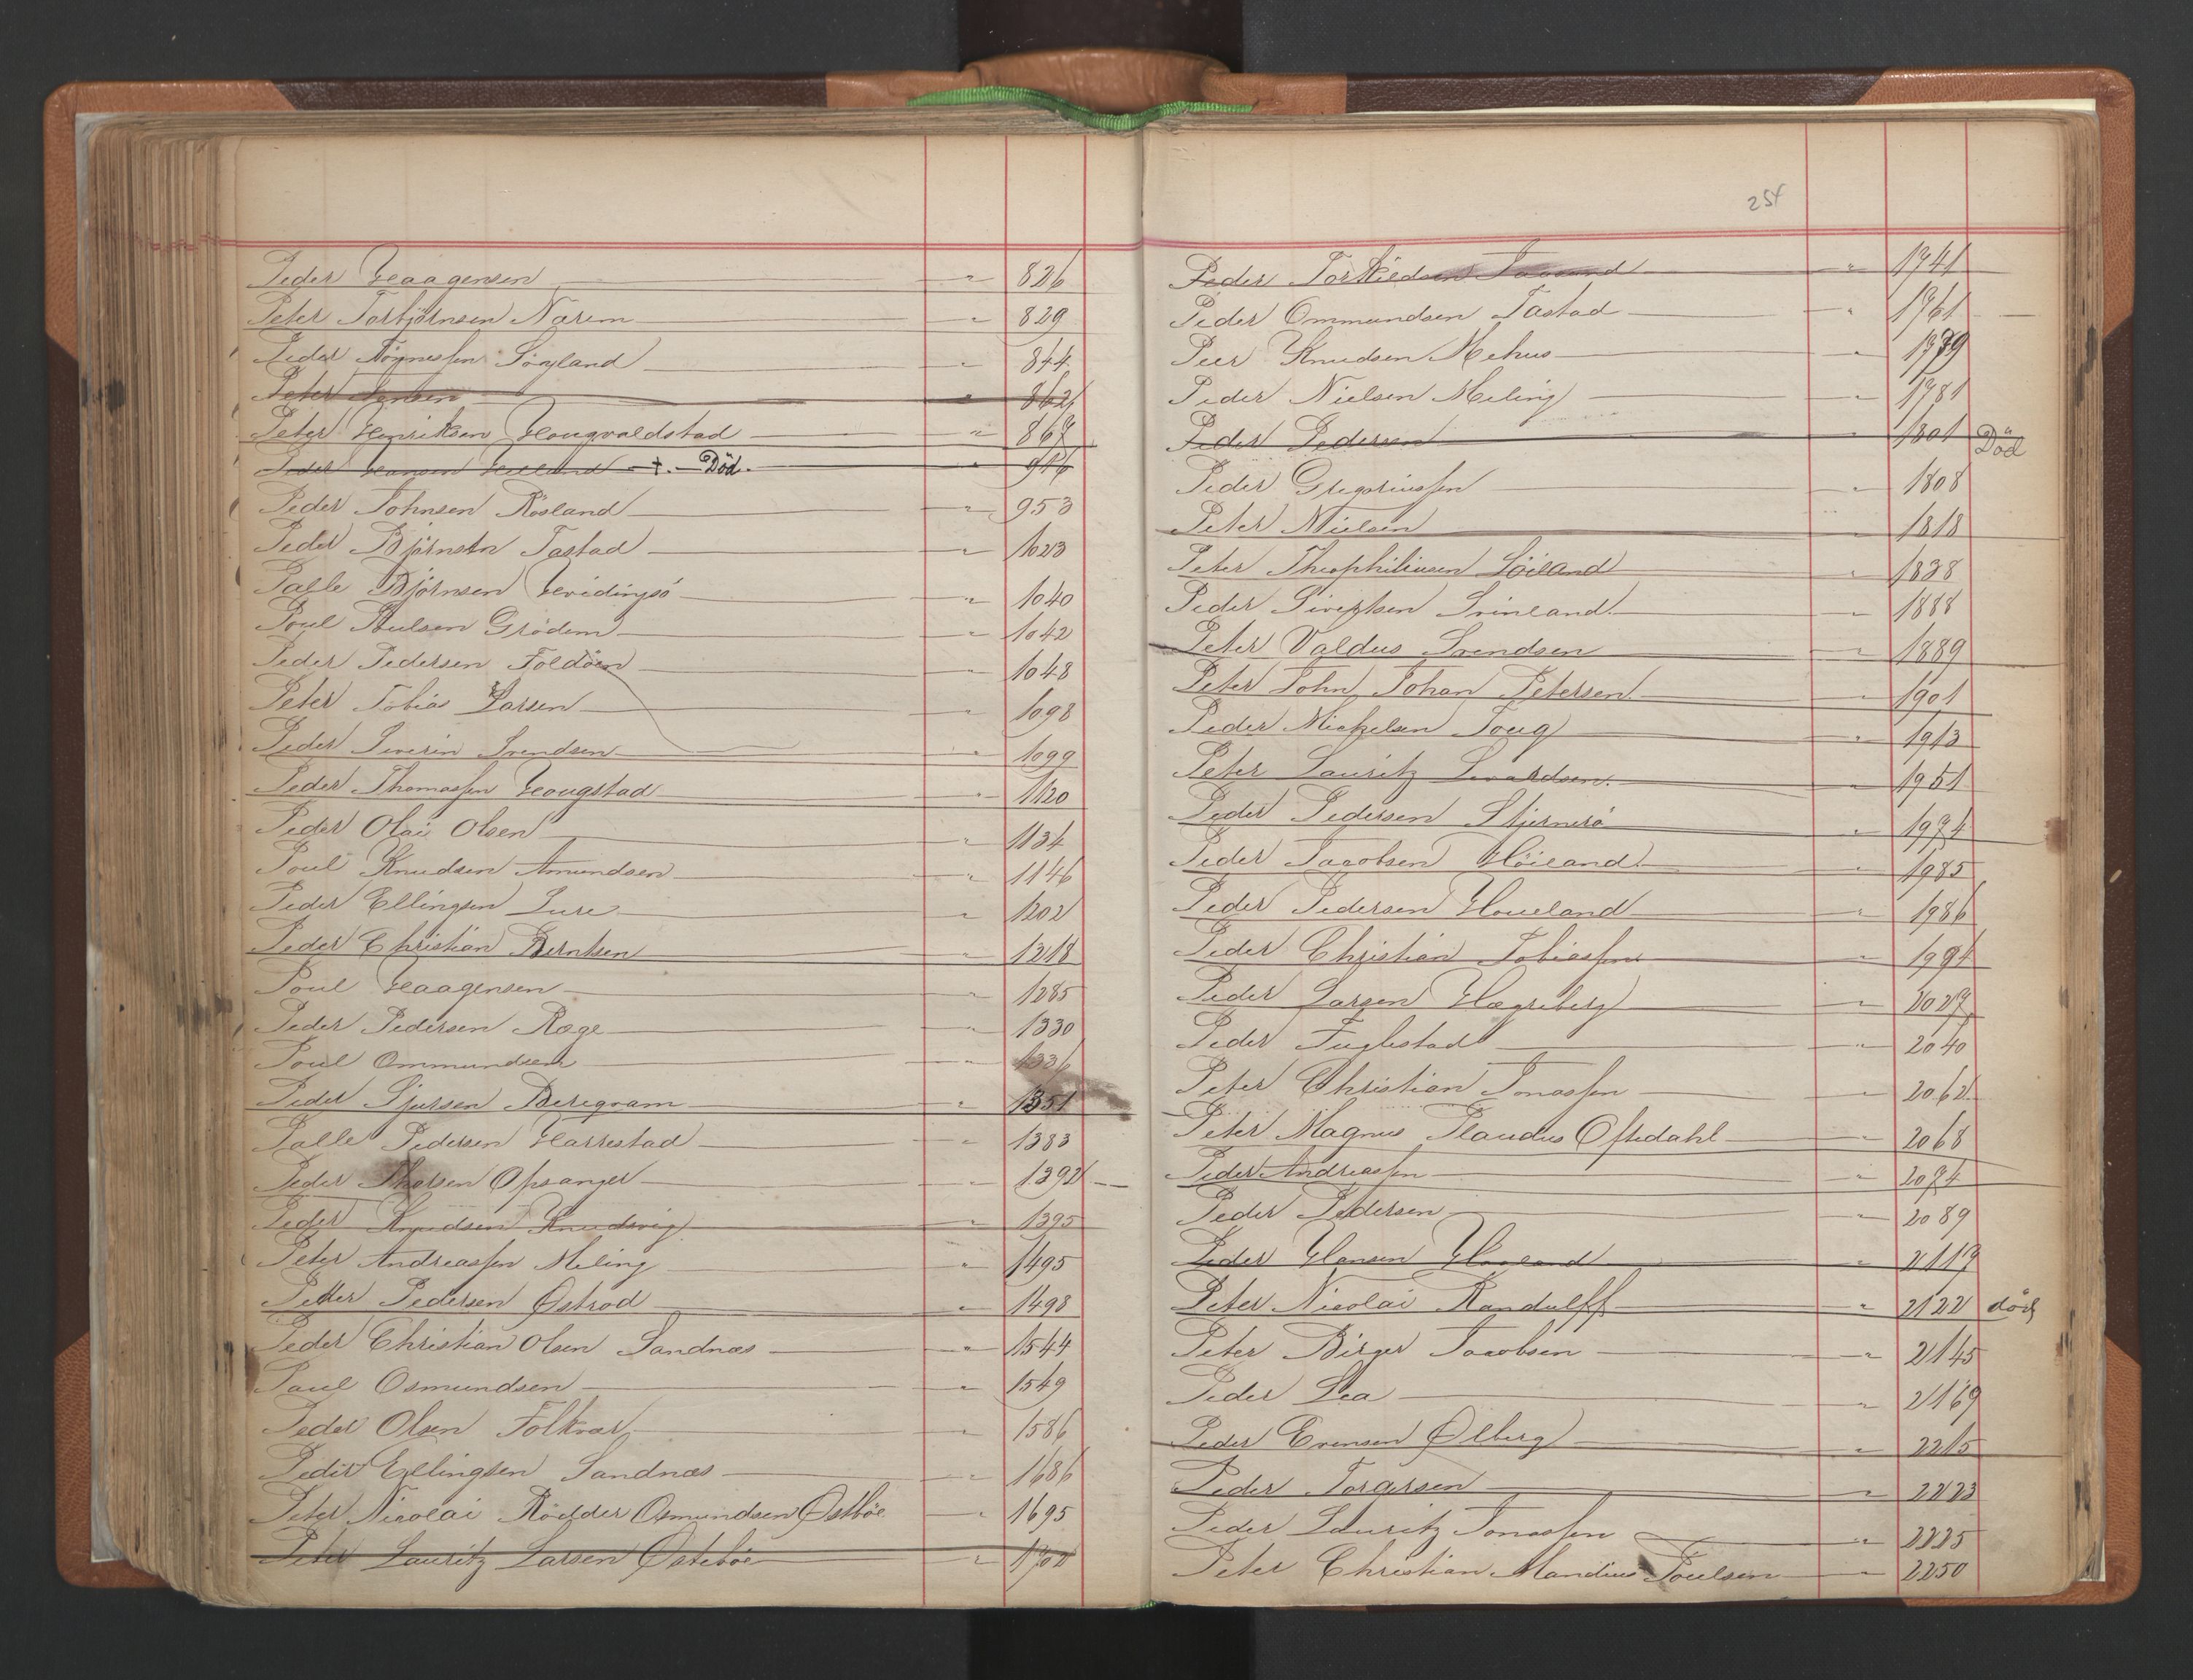 Peder Haagensen " 826
Peter Torbjörnsen Narem " 829
Peder Tönnesen Söyland " 844
Peter Jensen " 862
Peter Henriksen Hougvaldstad " 867
Peder Hansen +. Död. " 916
Peder Johnsen Rösland " 953
Peder Björnsen Tastad " 1023
Palle Björnsen Hvidingsö " 1040
Poul Poulsen Grödem " 1042
Peder Pedersen Foldöen " 1048
Peter Tobias Larsen " 1098
Peder Severin Svendsen " 1099
Peder Thomassen Hougstad " 1120
Peder Olai Olsen " 1134
Poul Knudsen Amundsen " 1146
Peder Ellingsen Lure " 1202
Peder Christian Berntsen " 1218
Poul Haagensen " 1285
Peder Pedersen Røge " 1330
Poul Ommundsen " 1336
Peder Sjursen Beregram " 1351
Palle Pedersen Harrestad " 1383
Peder Thorsen Opsanger " 1392
Peder Knudsen Knudsvig " 1395
Peter Andreassen Meling " 1495
Petter Pedersen Østrod " 1498
Peder Christian Olsen Sandnæs " 1544
Paul Osmundsen " 1549
Peder Olsen Folkvar " 1586
Peder Ellingsen Sandnæs " 1686
Peter Nicolai Rödder Osmundsen Østböe " 1695
Peter Lauritz Larsen Østeböe " 1702
254
Peder Torkildsen " 1741
Peder Ommundsen Tastad " 1761
Peer Knudsen Mehus " 1779
Peder Nielsen Meling " 1781
Peder Pedersen " 1801 Död
Peder Gregoriussen " 1808
Peter Nielsen " 1818
Peter Theophiliusen Söiland " 1838
Peder Sivertsen Svineland " 1888
Peter Valdus Svendsen " 1889
Peter John Johan Petersen " 1901
Peder Mickelsen Toug " 1913
Peter Lauritz Sivaldsen. " 1951
Peder Pedersen Stjernerö " 1974
Peder Jacobsen Höiland " 1985
Peder Pedersen Houeland " 1986
Peder Christian Tobiassen " 1994
Peder Larsen Hægreberg " 2027
Peder Fuglestad " 2040
Peter Christian Jonassen " 2062
Peter Magnus Claudius Oftedahl " 2068
Peder Andreassen " 2074
Peder Pedersen " 2089
Peder Hansen Haaland " 2119
Peter Nicolai Randulff " 2122 död
Peter Birger Jacobsen " 2145
Peder Lea " 2169
Peder Evensen Ølberg " 2215
Peder Torgersen " 2223
Peder Lauritz Jonassen " 2225
Peter Christian Mandius Poulsen " 2250